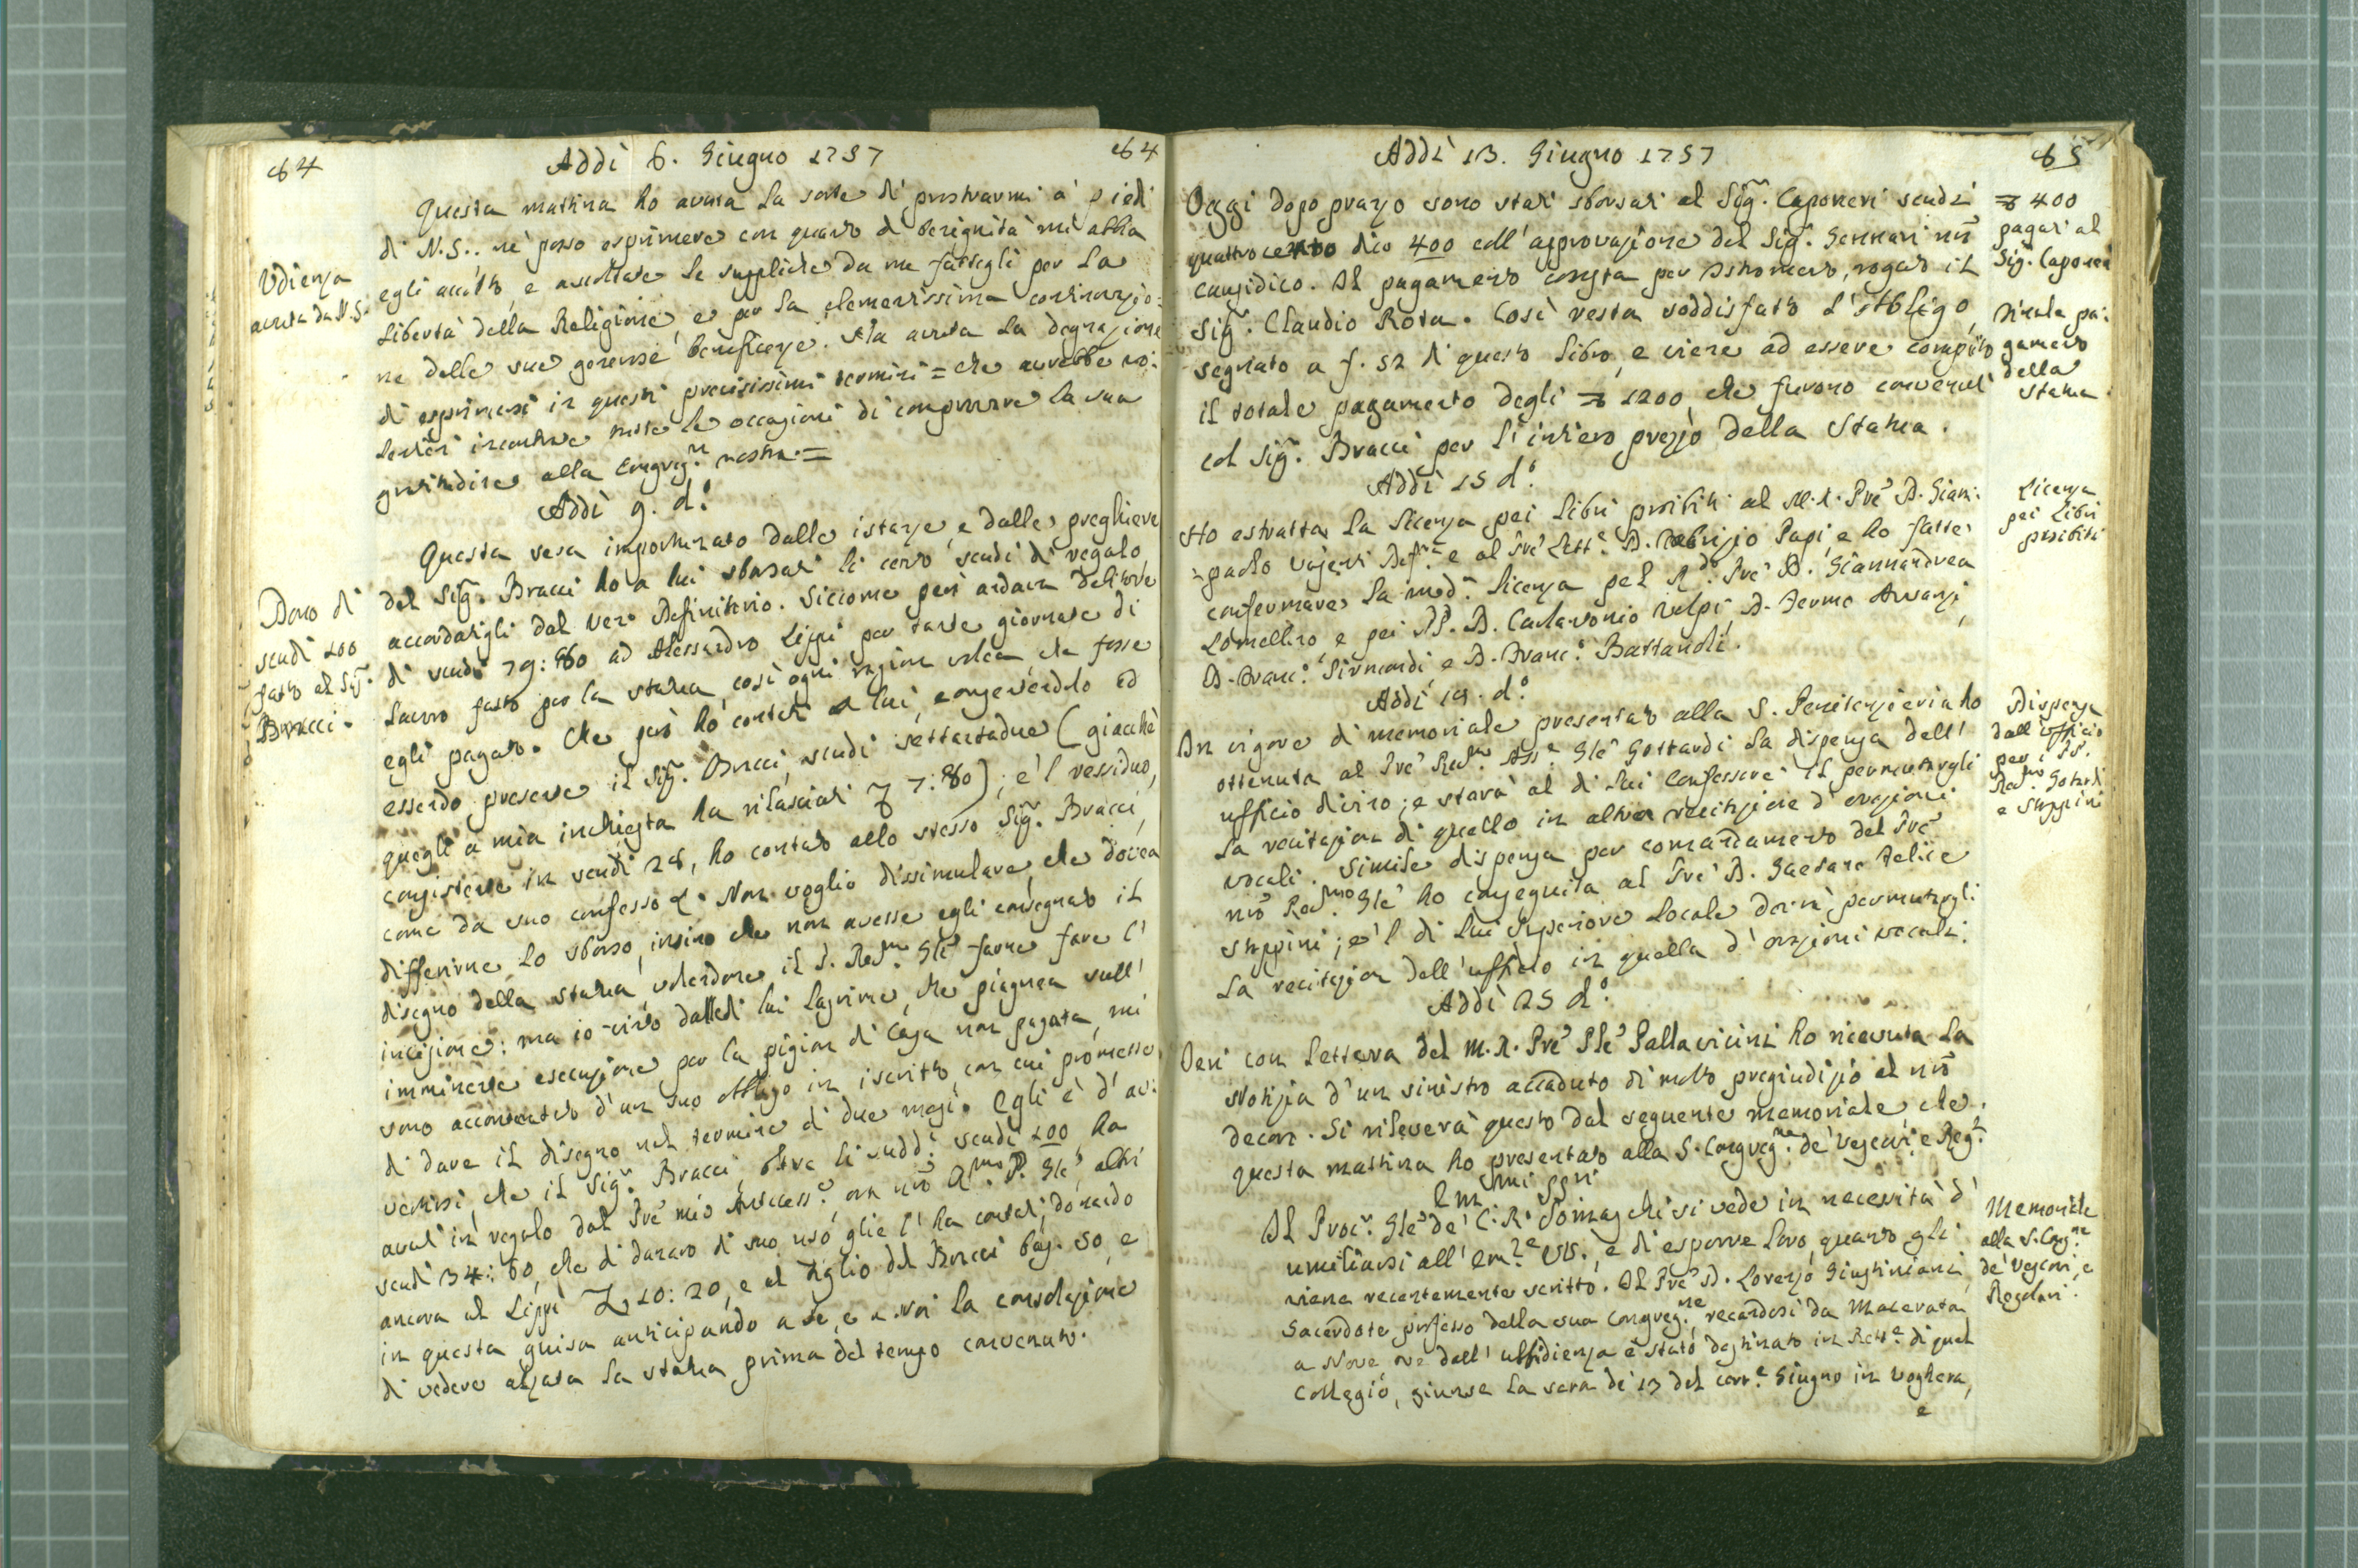 64
Addì 6. Giugno 1757
64
Questa mattina ho avuta la sorte di prostrarmi a' piedi
di N.S.. nè posso esprimere con quanto di benignità mi abbia
Udienza
avuta da N.S.
egli accolto, e ascoltate le suppliche da me fattegli per la
libertà della Religione, e per la clementissima continuazio:
ne delle sue generose beneficenze. Ha avuta la degnazione
di esprimersi in questi precisissimi termini = che avrebbe vo:
lentieri incontrate tutte le occasioni di comprovare la sua
gratitudine alla Congreg.ne nostra. =
Addì 9. d.o
Questa sera importunato dalle istanze, e dalle preghiere
del Sig.r Bracci ho a lui sborsati li cento scudi di regalo
Dono di
scudi 100
fatto al Sig.r
Bracci.
accordatigli dal Ven. Definitorio. Siccome però andava debitore
di scudi 79:80 ad Alessandro Lippi per tante giornate di
lavoro fatto per la statua, così ogni ragion volea, che fosse
egli pagato. Che però ho contati a lui, consentendolo ed
essendo presente il Sig.r Bracci, scudi settantadue (giacchè
quegli a mia inchiesta ha rilasciati 7:80); e 'l residuo,
consistente in scudi 28, ho contato allo stesso Sig.r Bracci,
come da suo confesso. Non voglio dissimulare, che dovea
differirne lo sborso, insino che non avesse egli consegnato il
disegno della statua, volendone il P. Rev.mo Gle farne fare l'
incisione: ma io vinto dalle di lui lagrime, che piagnea sull'
imminente esecuzione per la pigion di casa non pagata, mi
sono accontentato d'un suo obbligo in iscritto, con cui promette
di dare il disegno nel termine di due mesi. Egli è d' av:
vertirsi, che il Sig.r Bracci, oltre li sudd.i scudi 100, ha
avuti in regalo dal Pre mio Antecess.e, ora nro R.mo P. Gle, altri
scudi 34:60, che di danaro di suo uso glie l' ha contati; donando
ancora al Lippi 10:20, e al Figlio del Bracci baj. 50, e
in questa guisa anticipando a se, e a Noi la consolazione
di vedere alzata la statua prima del tempo convenuto.
Addì 13. Giugno 1757
65
Oggi dopo pranzo sono stati sborsati al Sig.r Caponeri scudi
quattrocento dico 400 coll' approvazione del Sig.r Gennari nro
causidico. Al pagamento consta per Istromento, rogato il
Sig.r Claudio Rota. Così resta soddisfatto l' obbligo,
segnato a f. 52 di questo libro, e viene ad essere compito
il totale pagamento degli 1200, che furono convenuti
col Sig.r Bracci per l' intiero prezzo della Statua.
400
pagati al
Sig.r Caponeri
Finale pa:
gamento
della
Statua
Addì 15 d.o
Ho estratta la licenza pei libri proibiti al M.R. Pre D. Giam:
paolo Def.re e al Pre Lett.e D. Papi, e ho fatte
confermare la med.a licenza pel R.do Pre D. Giannandrea
Lomellino, e pei PP. D. Carlantonio Volpi, D. Fermo
D. Franc.o Sirmondi, e D. Franc.o
Licenza
pei Libri
proibiti
Addì 19. d.o
In vigore di memoriale presentato alla S. Penitenzieria ho
ottenuta al Pre Rev.mo Ass.e Gle Gottardi la dispensa dell'
ufficio divino; e starà al di lui Confessore il permutargli
la recitazion di quello in altra recitazione d' orazioni
vocali. Simile dispensa per comandamento del Pre
nro Rev.mo Gle ho conseguita al Pre D. Gaetano Felice
Stoppini; e 'l di lui Superiore locale dovrà permutargli
la recitazion dell' ufficio in quella d' orazioni vocali.
Dispensa
dall' ufficio
per i PP.
Rev.mo Gottardi
e Stoppini
Addì 25 d.o
Ieri con lettera del M.R. Pre Ple Pallavicini ho ricevuta la
notizia d' un sinistro accaduto di molto pregiudizio al nro
decoro. Si rileverà questo dal seguente memoriale, che
questa mattina ho presentato alla S. Congreg.ne de' Vescovi, e Reg.i
Em.mi SSri
Al Proc.r Gle de' C.R. Somaschi si vede in necessità d'
umiliarsi all' Em.ze VV., e di esporre loro, quanto gli
viene recentemente scritto. Il Pre D. Lorenzo Giustiniani
Sacerdote professo della sua Congreg.ne, recandosi da Macerata
a Nove ove dall' ubbidienza è stato destinato in Rett.e di quel
Collegio, giunse la sera de' 13 del corr.e Giugno in Voghera,
e
Memoriale
alla S. Cong.ne
de' Vescovi, e
Regolari.